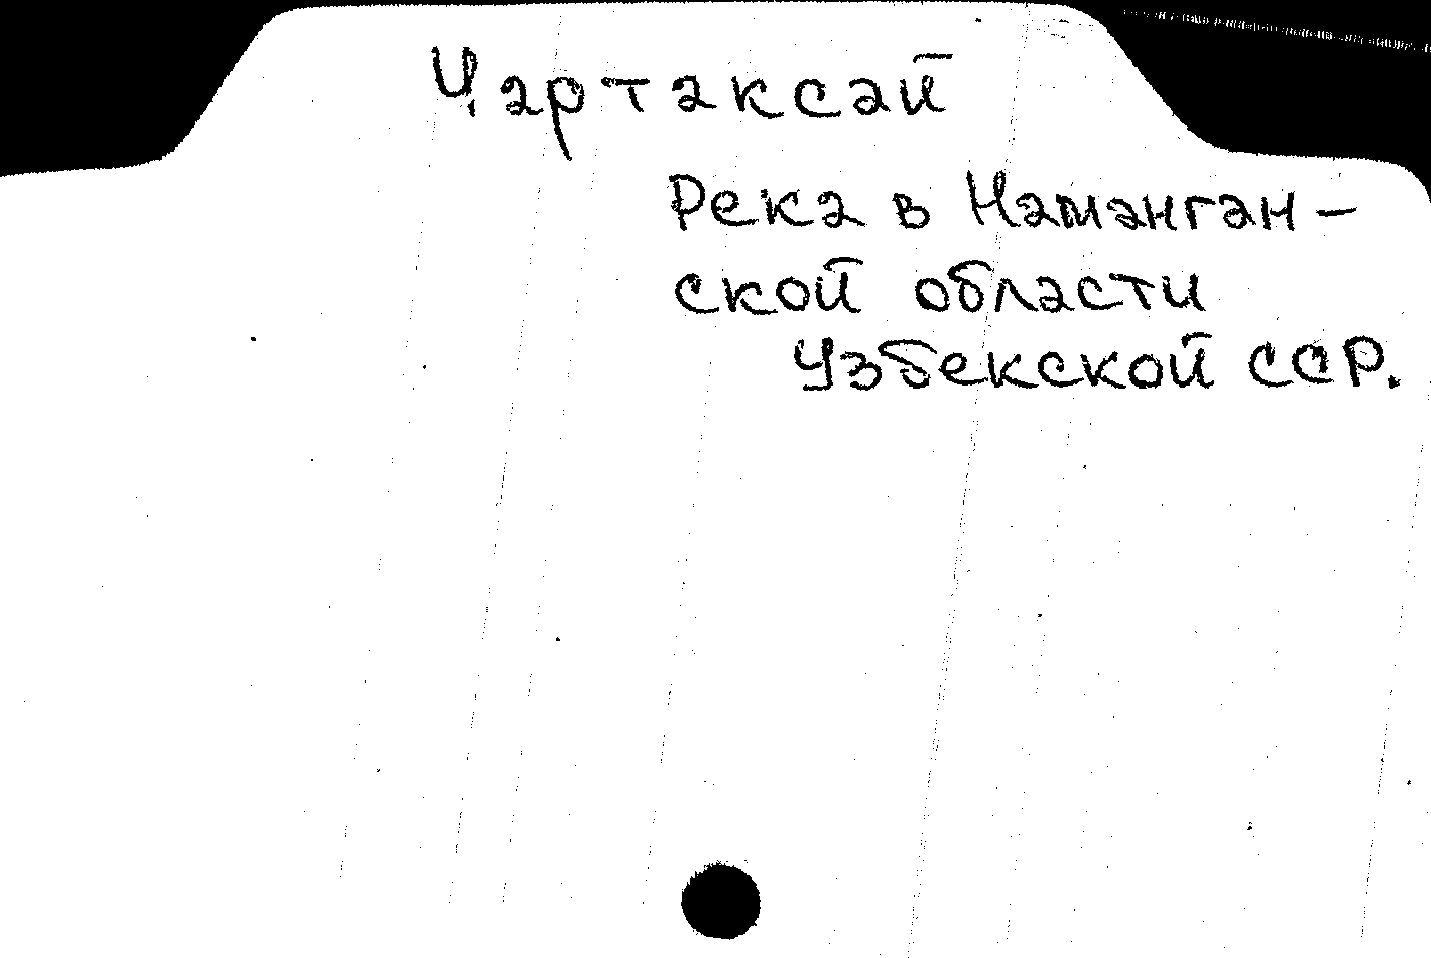 Чартаксай
Река в Наманган-
ской области
Узбекской ССР.